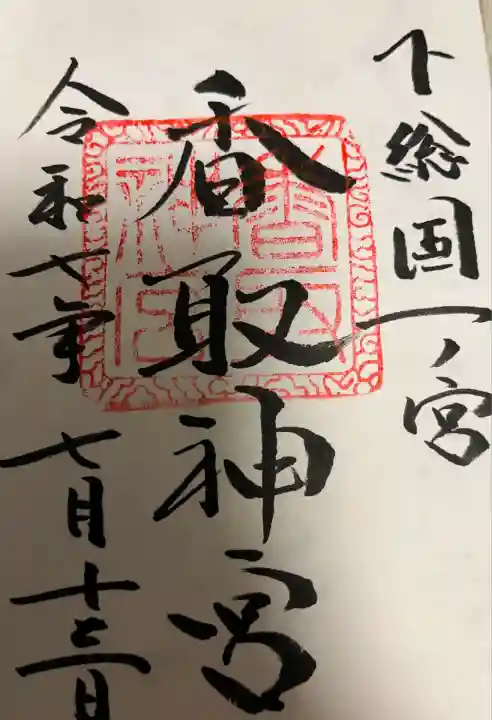 下総国一ノ宮
香取神宮
香取神宮
令和七年 七月十三日